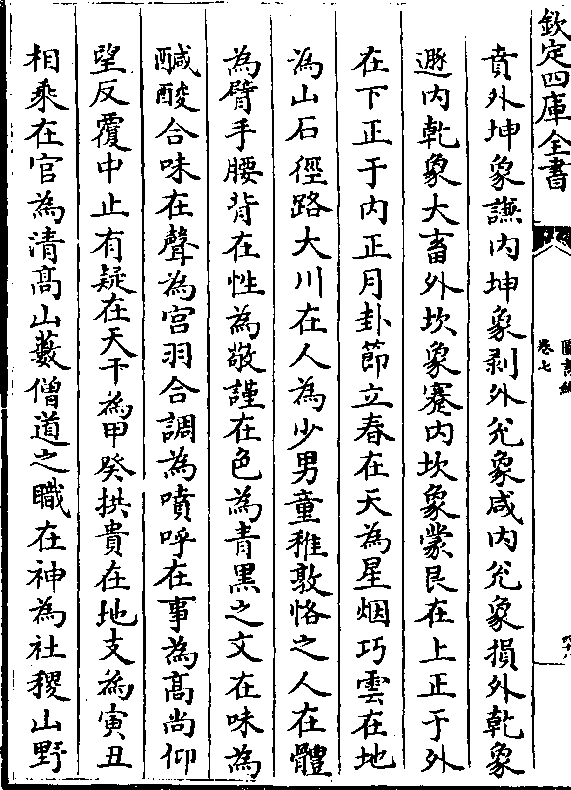 欽定四庫全書
圖書編
卷七
賁外坤象謙内坤象剥外兊象咸内兊象損外乾象
遯内乾象大畜外坎象蹇内坎象蒙艮在上正于外
在下正于内正月卦節立春在天為星烟巧雲在地
為山石徑路大川在人為少男童稚敦恪之人在體
為臂手腰背在性為敬謹在色為青黒之文在味為
醎酸合味在聲為宫羽合調為噴呼在事為髙尚仰
望反覆中止有疑在天干為甲癸拱貴在地支為寅丑
相乘在官為清髙山藪僧道之職在神為社稷山野